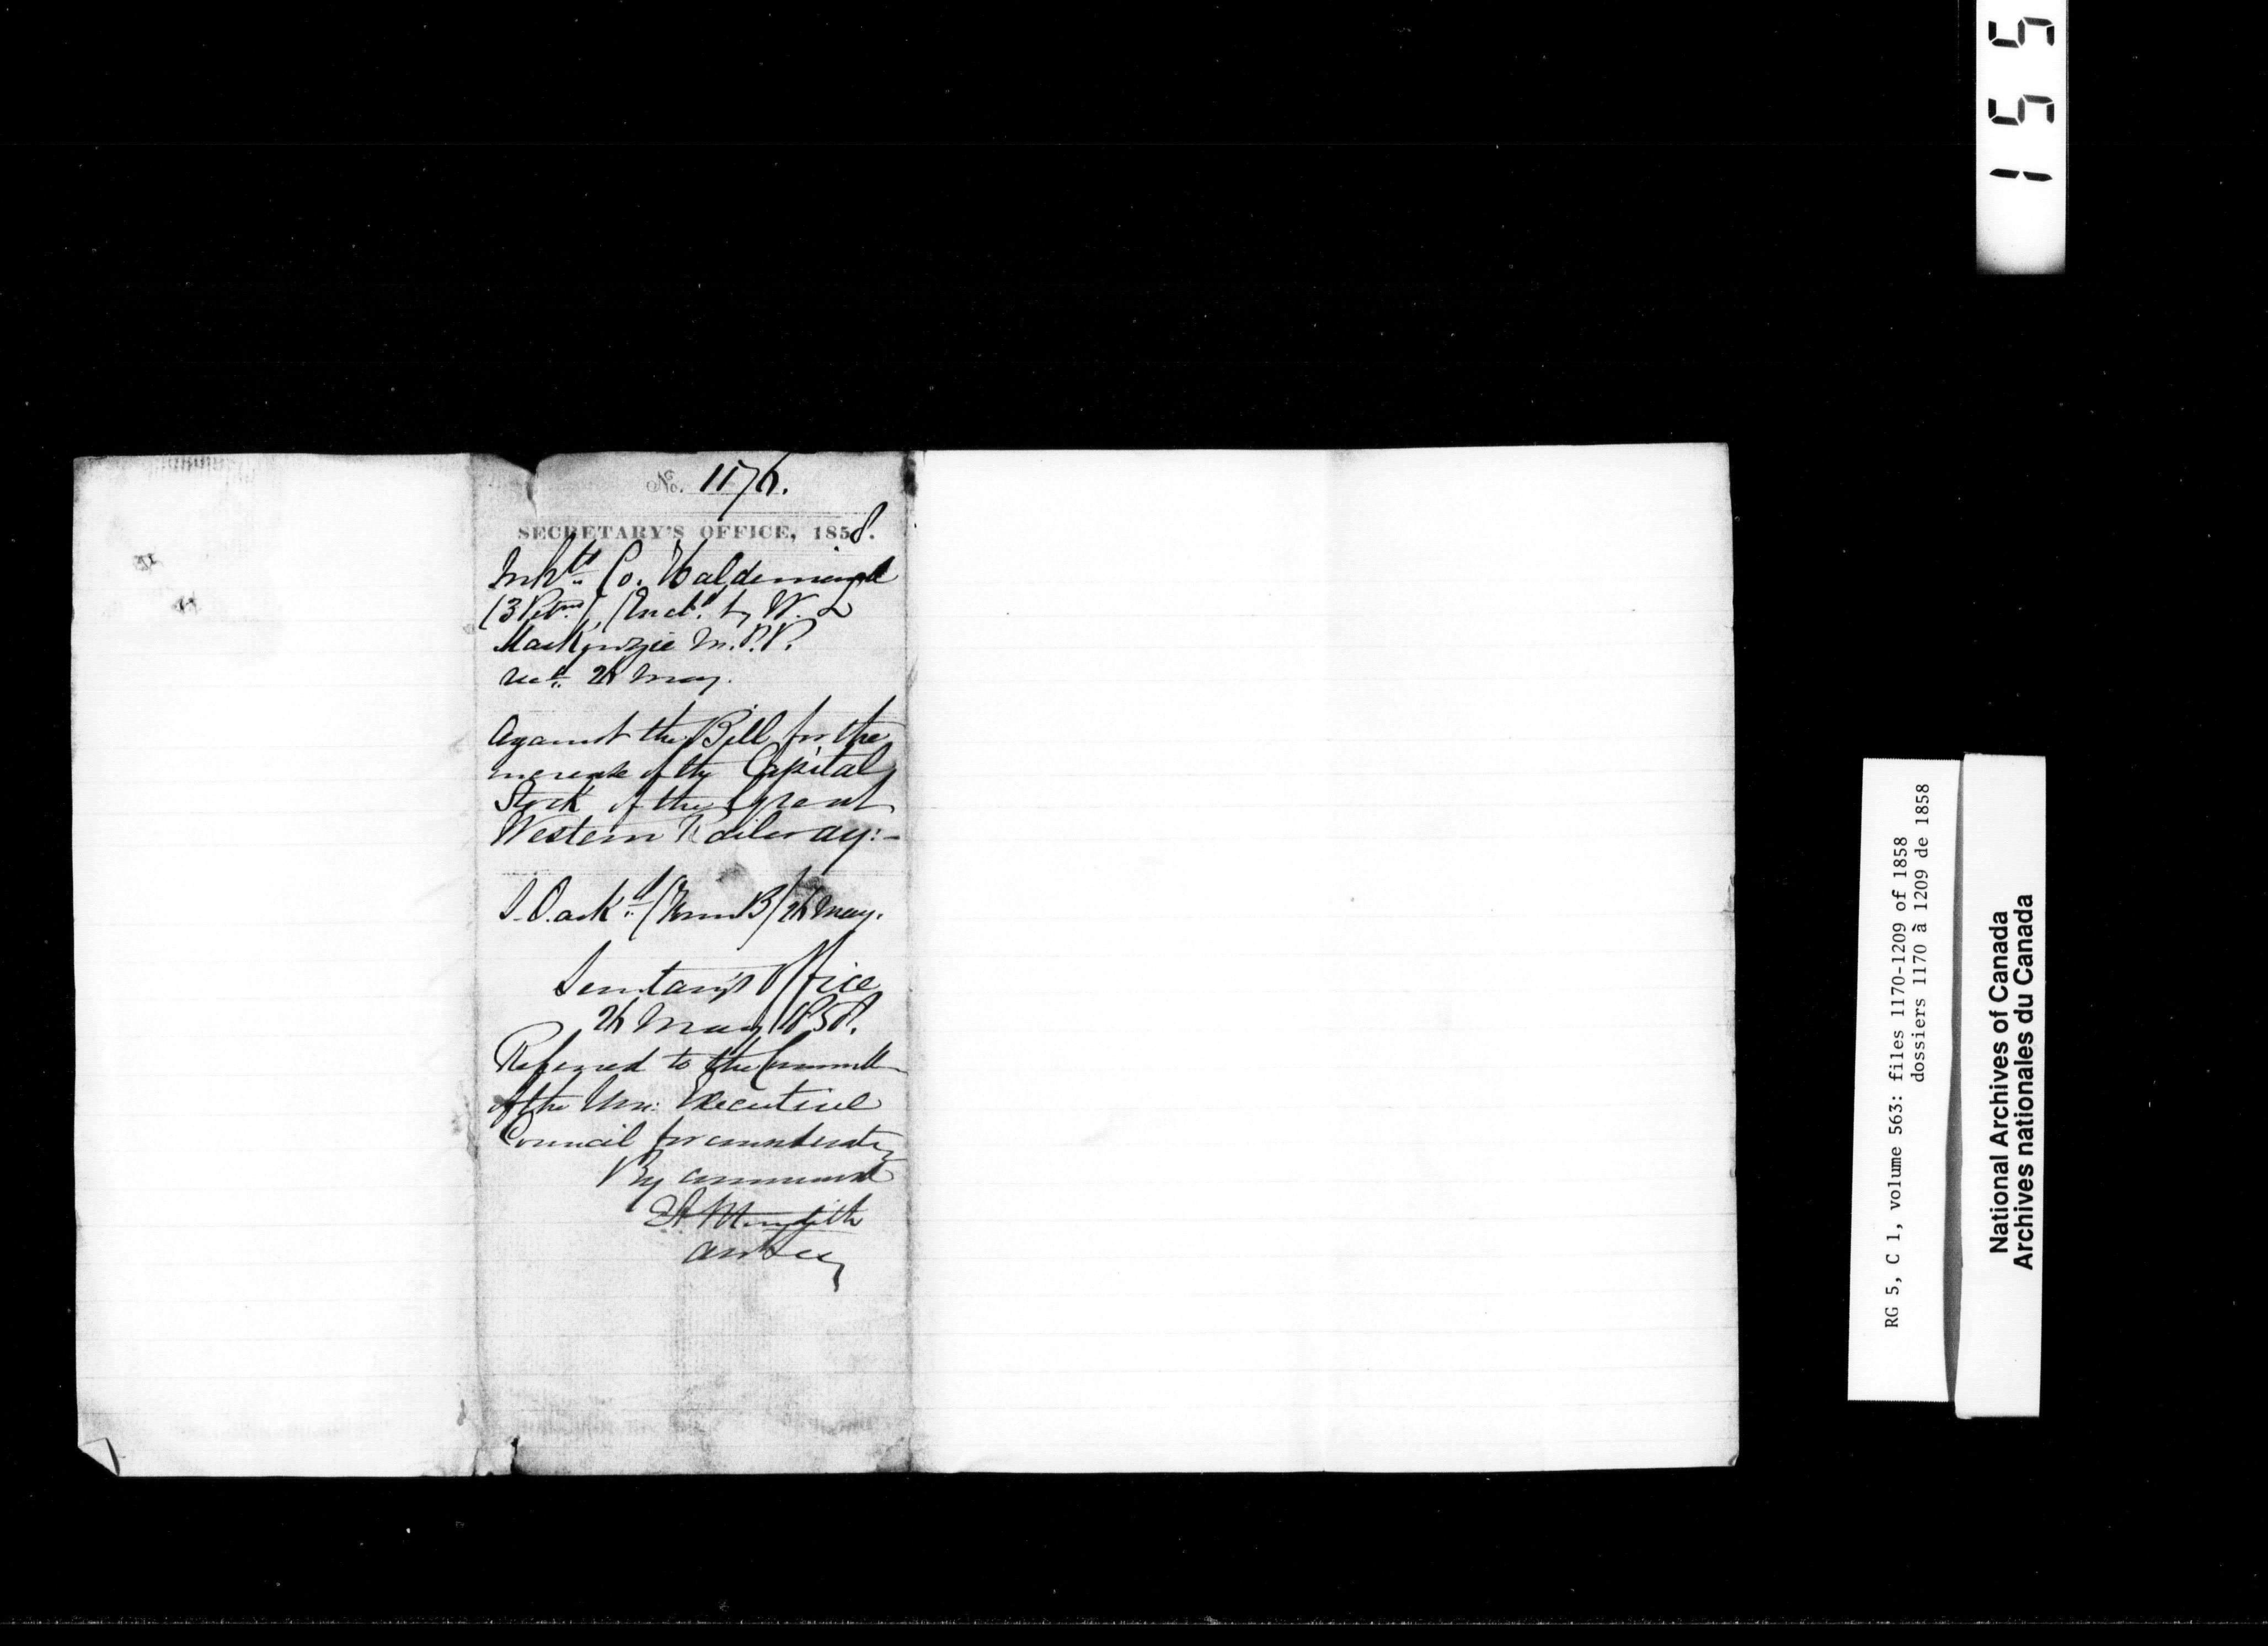 No. 1176.
SECRETARY'S OFFICE, 1858.
Inhts. Co. Haldimand
(3 Petns), (Encd. by W. L
MacKenzie M.P.P.
recd. 26 May.
Against the Bill for the
increase of the Capital
Stock of the Great
Western Railway:-
ackd. (Form B) 26 May.
Secretary's Office
26 May 1858.
Referred to the Committee
of the Hon: Executive
Council for consideration
By command
E A Meredith
Asst Secy
155
RG 5, C 1, volume 563: files 1170-1209 of 1858
dossiers 1170 à 1209 de 1858
National Archives of Canada
Archives nationales du Canada